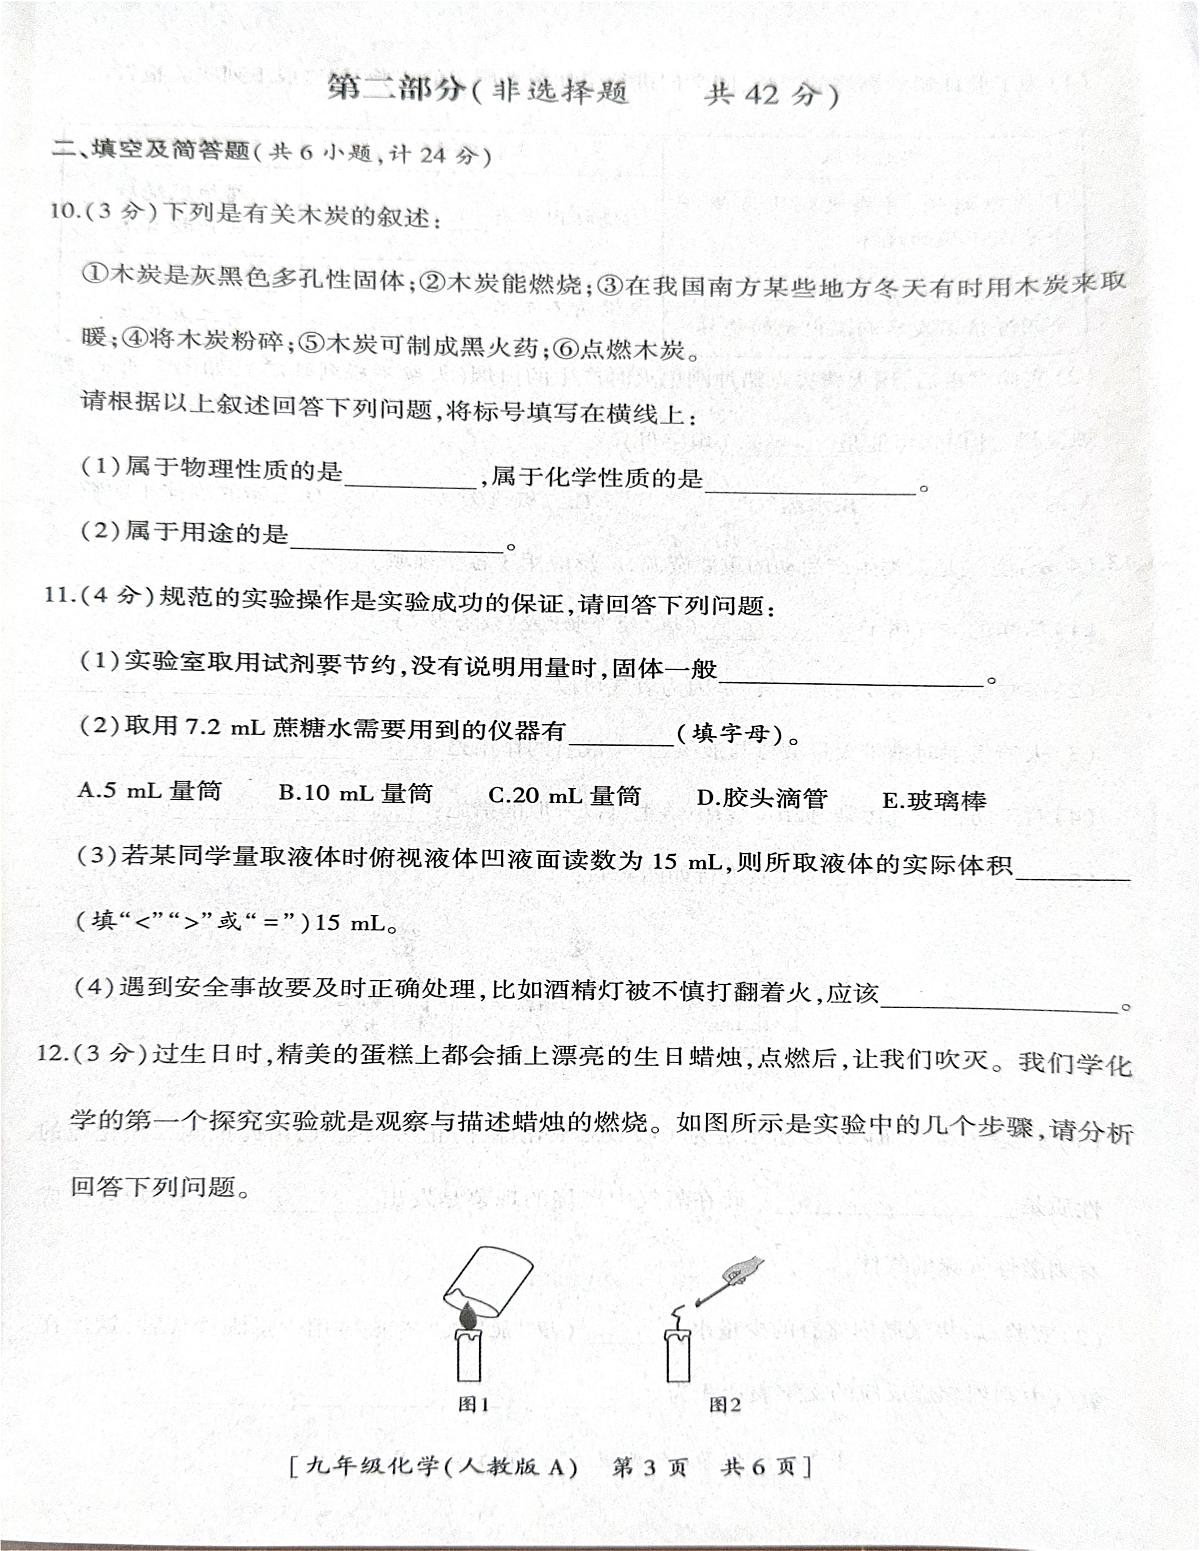 第二部分(非选择题 共42分)
二、填空及简答题(共6小题,计24分)
10.(3分)下列是有关木炭的叙述:
①木炭是灰黑色多孔性固体;②木炭能燃烧;③在我国南方某些地方冬天有时用木炭来取
暖;④将木炭粉碎;⑤木炭可制成黑火药;⑥点燃木炭。
请根据以上叙述回答下列问题,将标号填写在横线上:
(1)属于物理性质的是__________,属于化学性质的是________________。
(2)属于用途的是________________。
11.(4分)规范的实验操作是实验成功的保证,请回答下列问题:
(1)实验室取用试剂要节约,没有说明用量时,固体一般____________________。
(2)取用7.2 mL蔗糖水需要用到的仪器有________(填字母)。
A.5 mL量筒 B.10 mL量筒 C.20 mL量筒 D.胶头滴管 E.玻璃棒
(3)若某同学量取液体时俯视液体凹液面读数为15 mL,则所取液体的实际体积_________
(填“<”“>”或“=”)15 mL。
(4)遇到安全事故要及时正确处理,比如酒精灯被不慎打翻着火,应该__________________。
12.(3分)过生日时,精美的蛋糕上都会插上漂亮的生日蜡烛,点燃后,让我们吹灭。我们学化
学的第一个探究实验就是观察与描述蜡烛的燃烧。如图所示是实验中的几个步骤,请分析
回答下列问题。
图1 图2
[九年级化学(人教版A) 第3页 共6页]